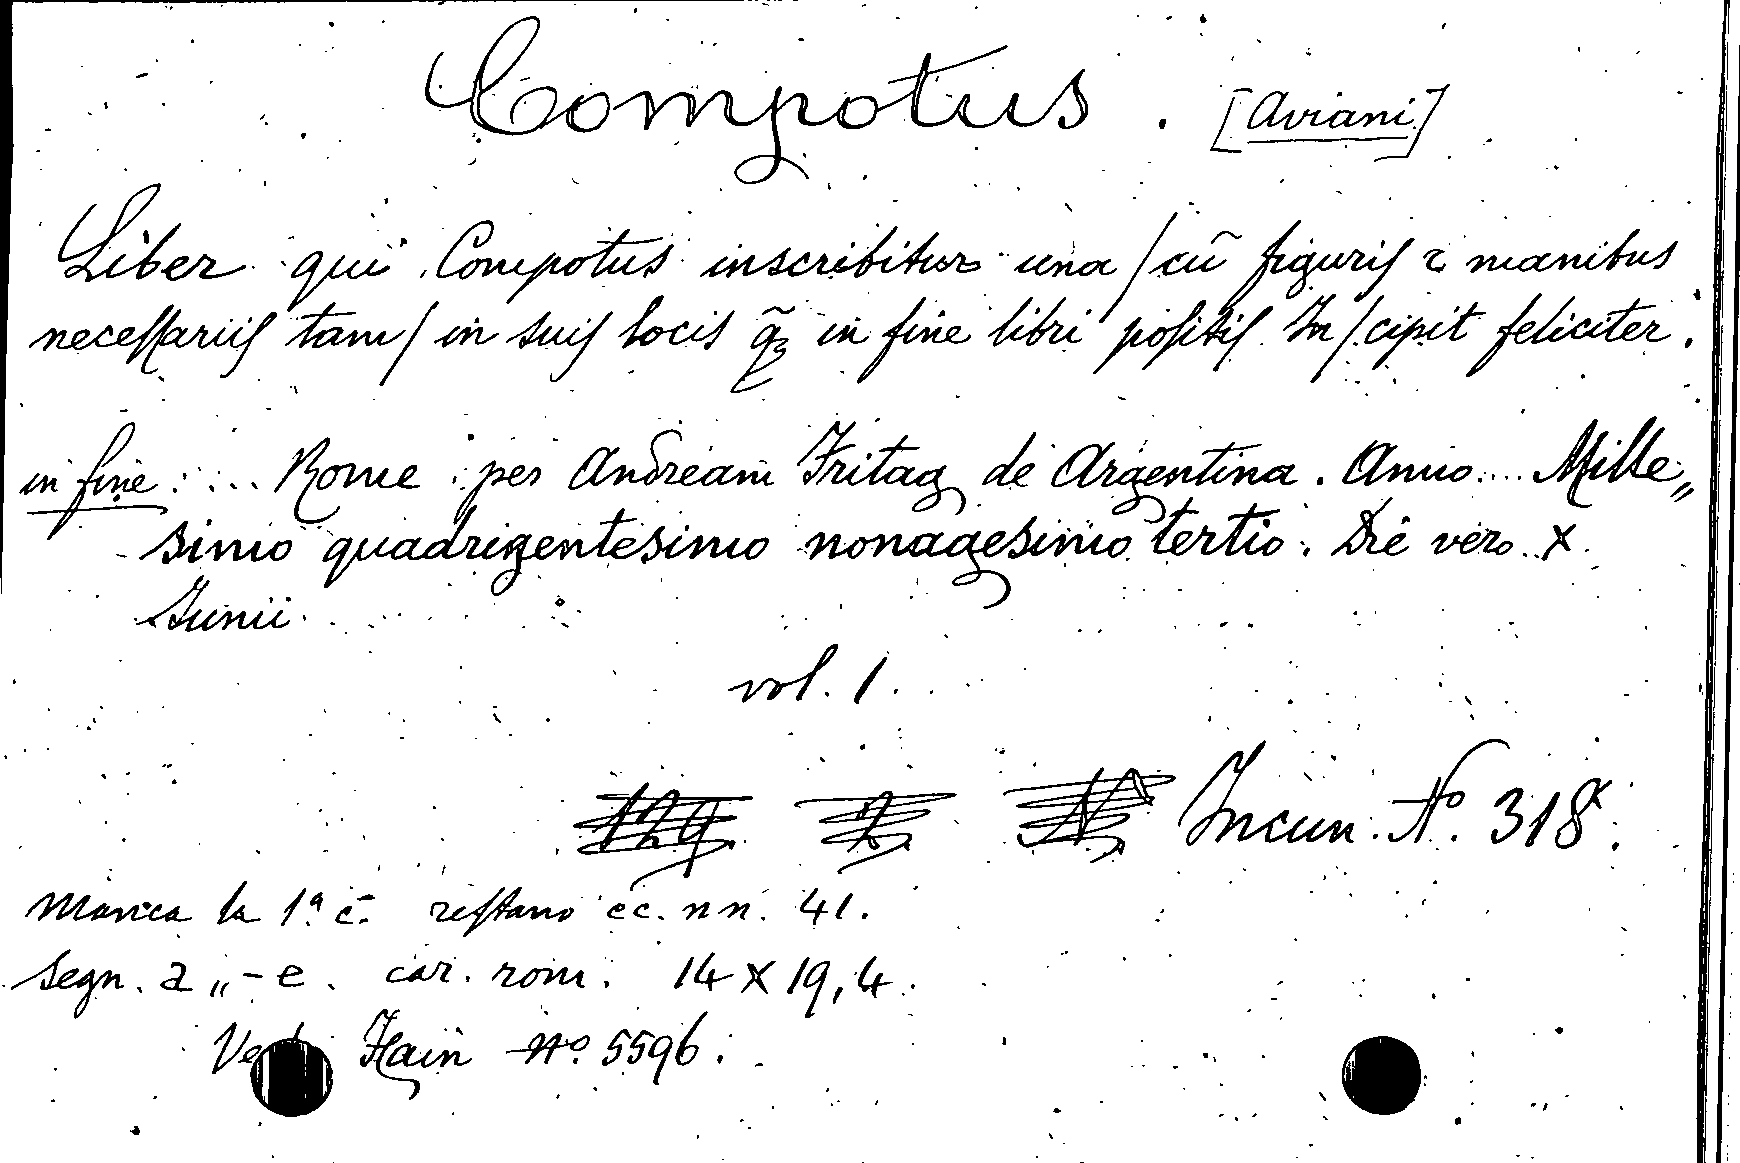 Compotus. [Aviani]
Liber qui Compotus inscribitur una / cū figuris ⁊ manibus
neceſſariiſ tam / in suiſ locis q̃ꝫ in fine libri poſitiſ In / cipit feliciter.
in fine: ... Rome per Andream Fritag de Argentina. Anno.... Mille„
simo quadrigentesimo nonagesimo tertio. Die vero X
Junii
vol. 1.
Incun. Nº. 318.
Manca la 1ª c. reſtano cc. nn. 41.
Segn. a „- e. car. rom. 14 X 19,4.
Hain Nº. 5596.